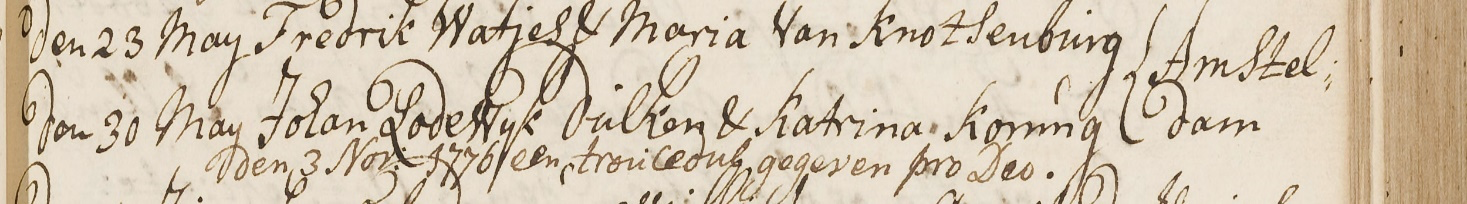 Den 23 May Fredrik Watjes & Maria Van Knotsenburg { Amstel:
Den 30 May Johan Lodewyk Dulken & Katrina Koning { dam
den 3 Nov: 1776 een trouwcedul gegeven pro Deo.